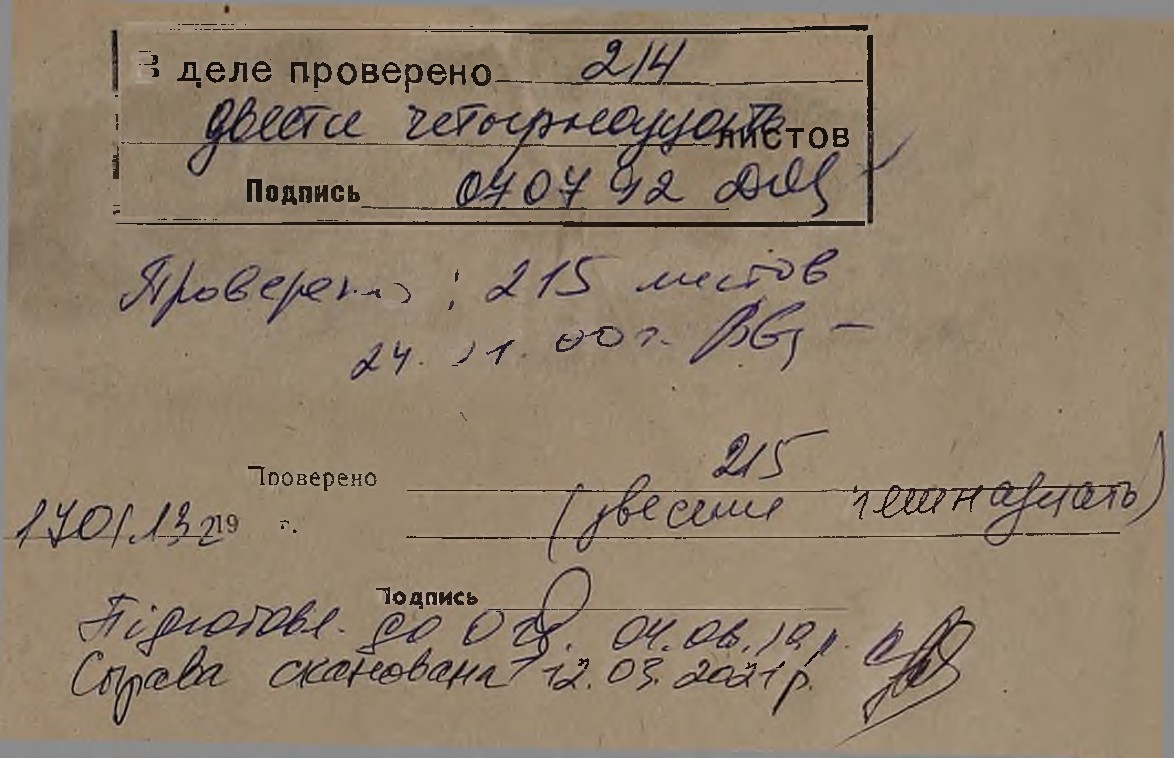 В деле проверено 214
двести четырнадцать листов
Подпись 07 07 92
Проверено: 215 листов
24. 11. 00 г.
Проверено 215
17 01.13 219 г. (двести пятнадцать)
Подпись
Підготовл. до 04.06.19 р.
Справа сканована 12.03.2021 р.